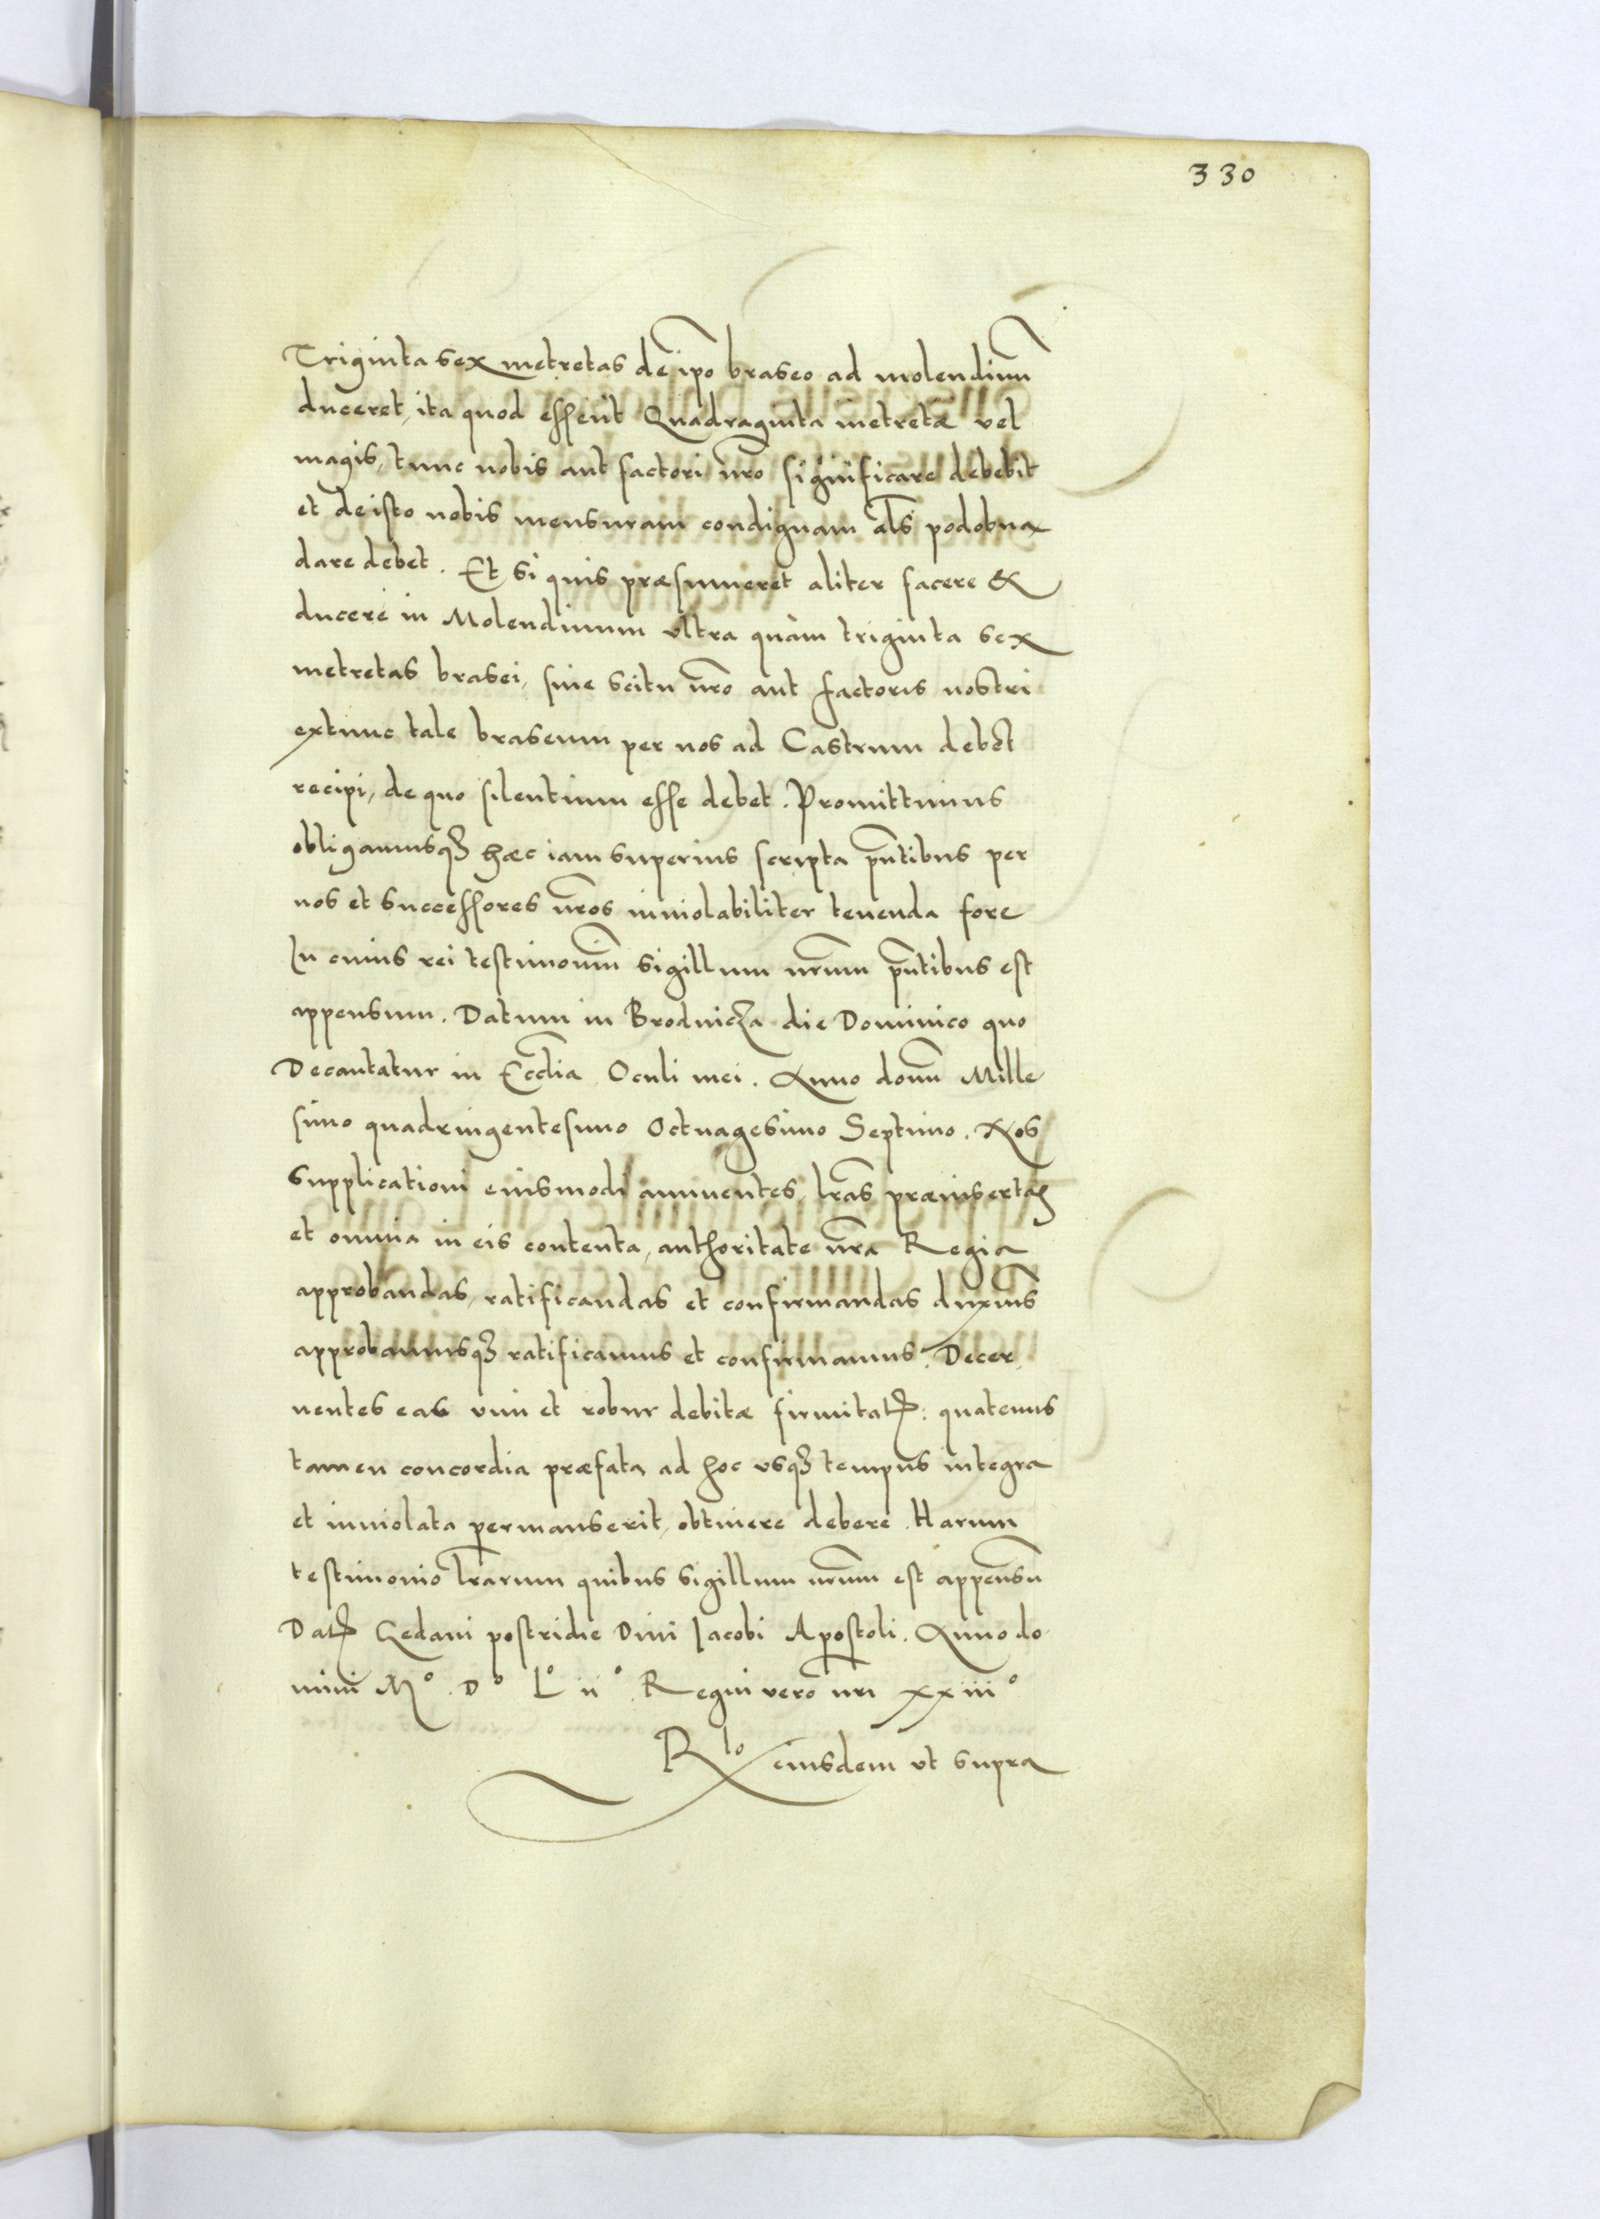 330
Triginta sex metretas de ip̄o braseo ad molendinū
duceret, ita quod essent Quadraginta metretæ vel
magis, tunc nobis aut factori nr̄o significare debebit
et de isto nobis mensuram condignam al̄s podobna
dare debet. Et si quis præsumeret aliter facere &
ducere in Molendinum ultra quàm triginta sex
metretas brasei, sine scitu nr̄o aut factoris nostri
extunc tale braseum per nos ad Castrum debet
recipi, de quo silentium esse debet. Promittimus
obligamusqꝫ hæc iam superius scripta pn̄tibus per
nos et successores nr̄os inviolabiliter tenenda fore
In cuius rei testimoniū sigillum nr̄um pn̄tibus est
appensum. Datum in Brodnicza die Dominico quo
Decantatur in Eccl̄ia Oculi mei. Anno domī Mille
simo quadringentesimo Octuagesimo Septimo. Nos
supplicationi eiusmodi annuentes, lr̄as præinsertas
et omnia in eis contenta, authoritate nr̄a Regia
approbandas, ratificandas et confirmandas duxim̄s
approbamusqꝫ ratificamus et confirmamus. Decer
nentes eas vim et robur debitæ firmitatꝭ: quatenus
tamen concordia præfata ad hoc usqꝫ tempus integra
et inviolata permanserit, obtinere debere. Harum
testimonio lr̄arum quibus sigillum nr̄um est appensū
Datꝭ Gedani postridie Divi Jacobi Apostoli. Anno do
mini Mº. Dº Lº iiº. Regni vero nr̄i xxiiiº
Rˡᵒ eiusdem ut supra